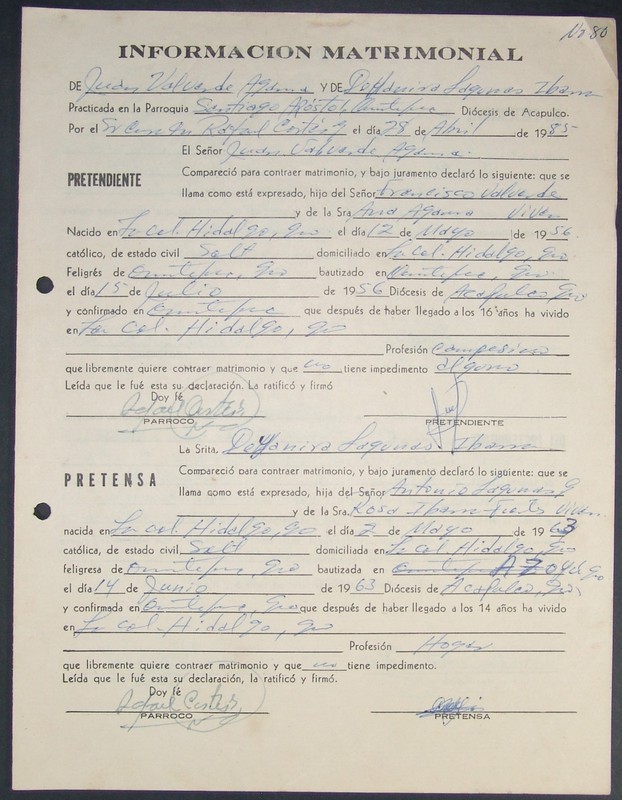 No 80
INFORMACION MATRIMONIAL
DE Juan Valverde Agama Y DE Deyanira Lagunas Ibarra
Practicada en la Parroquia Santiago Apóstol Diócesis de Acapulco.
Por el Sr Cura Rafael Cortés G el día 28 de Abril de 1985
El Señor Juan Valverde Agama.
PRETENDIENTE
Compareció para contraer matrimonio, y bajo juramento declaró lo siguiente: que se
llama como está expresado, hijo del Señor Francisco Valverde
y de la Sra. Ana Agama Viven
Nacido en La Col. Hidalgo, Gro el día 12 de Mayo de 1956.
católico, de estado civil Solt domiciliado en La Col. Hidalgo, Gro.
Feligrés de Ometepec, Gro bautizado en Ometepec, Gro.
el día 15 de Julio de 1956 Diócesis de Acapulco Gro
y confirmado en Ometepec que después de haber llegado a los 16 años ha vivido
en La Col. Hidalgo, Gro
Profesión Campesino
que libremente quiere contraer matrimonio y que no tiene impedimento alguno
Leída que le fué esta su declaración. La ratificó y firmó
Doy fé
Rafael Cortés G
PARROCO
PRETENDIENTE
La Srita. Deyanira Lagunas Ibarra
PRETENSA
Compareció para contraer matrimonio, y bajo juramento declaró lo sigüiente: que se
llama como está expresado, hija del Señor Antonio Lagunas G
y de la Sra. Rosa Ibarra Viven
nacida en La Col. Hidalgo, Gro el día 2 de Mayo de 1963
católica, de estado civil Solt domiciliada en La Col Hidalgo, Gro
feligresa de Ometepec Gro bautizada en Ometepec
el día 14 de Junio de 1963 Diócesis de Acapulco, Gro,
y confirmada en Ometepec, Gro que después de haber llegado a los 14 años ha vivido
en La Col. Hidalgo, Gro
Profesión Hogar
que libremente quiere contraer matrimonio y que no tiene impedimento.
Leída que le fué esta su declaración, la ratificó y firmó.
Doy fé
Rafael Cortés G
PARROCO
PRETENSA